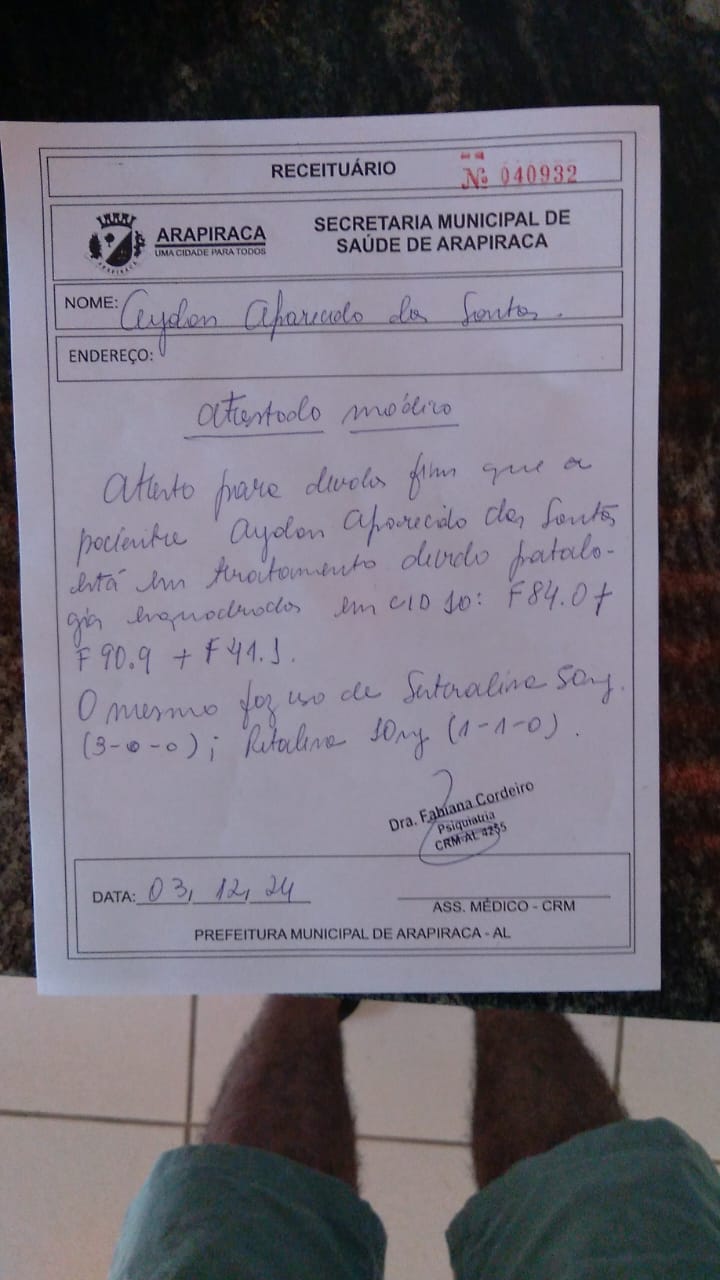 RECEITUÁRIO
Nº 040932
ARAPIRACA
UMA CIDADE PARA TODOS
ARAPIRACA
SECRETARIA MUNICIPAL DE
SAÚDE DE ARAPIRACA
NOME: Aydon Aparecido dos Santos.
ENDEREÇO:
Atestado médico
Atesto para devidos fins que o
paciente Aydon Aparecido dos Santos
está em tratamento devido patolo-
gia enquadrados em CID 10: F84.0 +
F 90.9 + F 41.1.
O mesmo faz uso de Sertralina 50mg.
(3-0-0); Ritalina 10mg (1-1-0).
Dra. Fabiana Cordeiro
Psiquiatria
CRM-AL 4255
DATA: 03, 12, 24
ASS. MÉDICO - CRM
PREFEITURA MUNICIPAL DE ARAPIRACA - AL